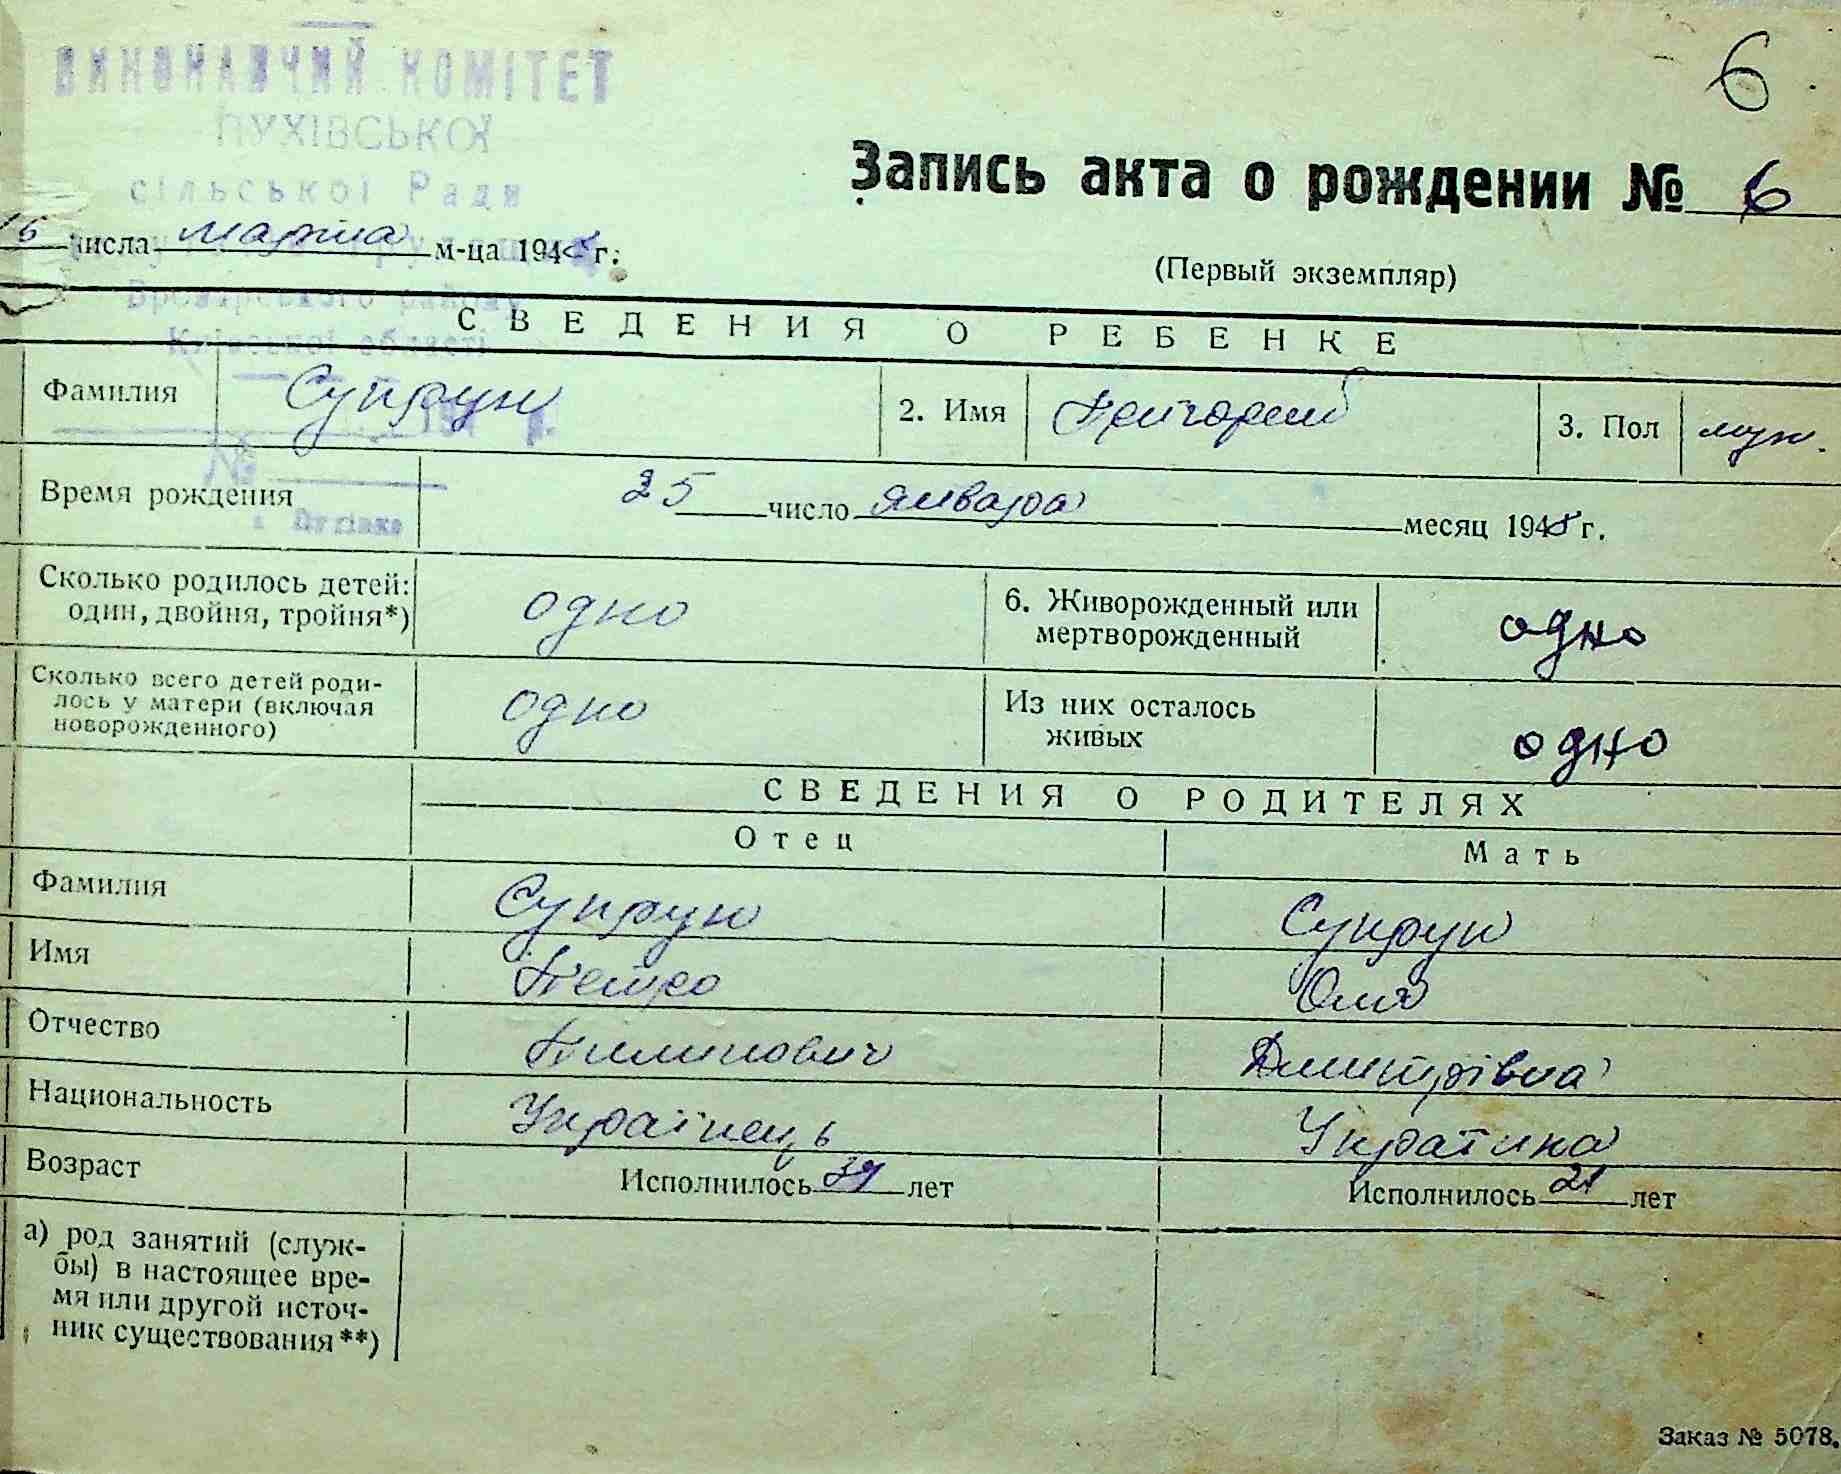 6
ВИКОНАВЧИЙ КОМІТЕТ
ПУХІВСЬКОЇ
сільської Ради
Запись акта о рождении № 6
16 числа марта м-ца 194 г.
(Первый экземпляр)
Броварського району
Київської області
СВЕДЕНИЯ О РЕБЕНКЕ
Фамилия Супрун 2. Имя Григорий 3. Пол муж.
№
Время рождения 25 число января месяц 194 г.
Сколько родилось детей: один, двойня, тройня*) одно 6. Живорожденный или мертворожденный одно
Сколько всего детей родилось у матери (включая новорожденного) одно Из них осталось живых одно
СВЕДЕНИЯ О РОДИТЕЛЯХ
Отец Мать
Фамилия Супрун Супрун
Имя Петро
Отчество Пилипович Дмитрівна
Национальность Українець Українка
Возраст Исполнилось 39 лет Исполнилось 21 лет
а) род занятий (служ-
бы) в настоящее вре-
мя или другой источ-
ник существования**)
Заказ № 5078.